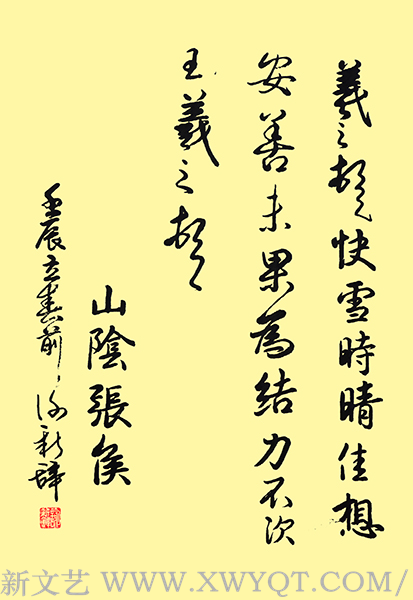 羲之頓首快雪時晴佳想
安善未果為結力不次
王羲之頓首
山陰張侯
壬辰立春前
新文艺 WWW.XWYQT.COM/